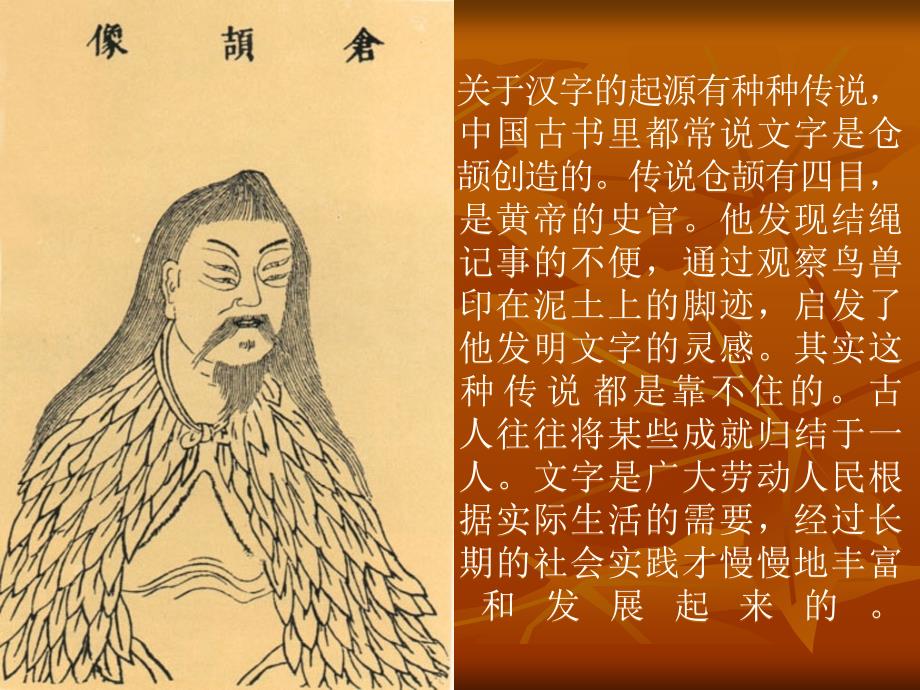 倉頡像
关于汉字的起源有种种传说，
中国古书里都常说文字是仓
颉创造的。传说仓颉有四目，
是黄帝的史官。他发现结绳
记事的不便，通过观察鸟兽
印在泥土上的脚迹，启发了
他发明文字的灵感。其实这
种传说都是靠不住的。古
人往往将某些成就归结于一
人。文字是广大劳动人民根
据实际生活的需要，经过长
期的社会实践才慢慢地丰富
和发展起来的。